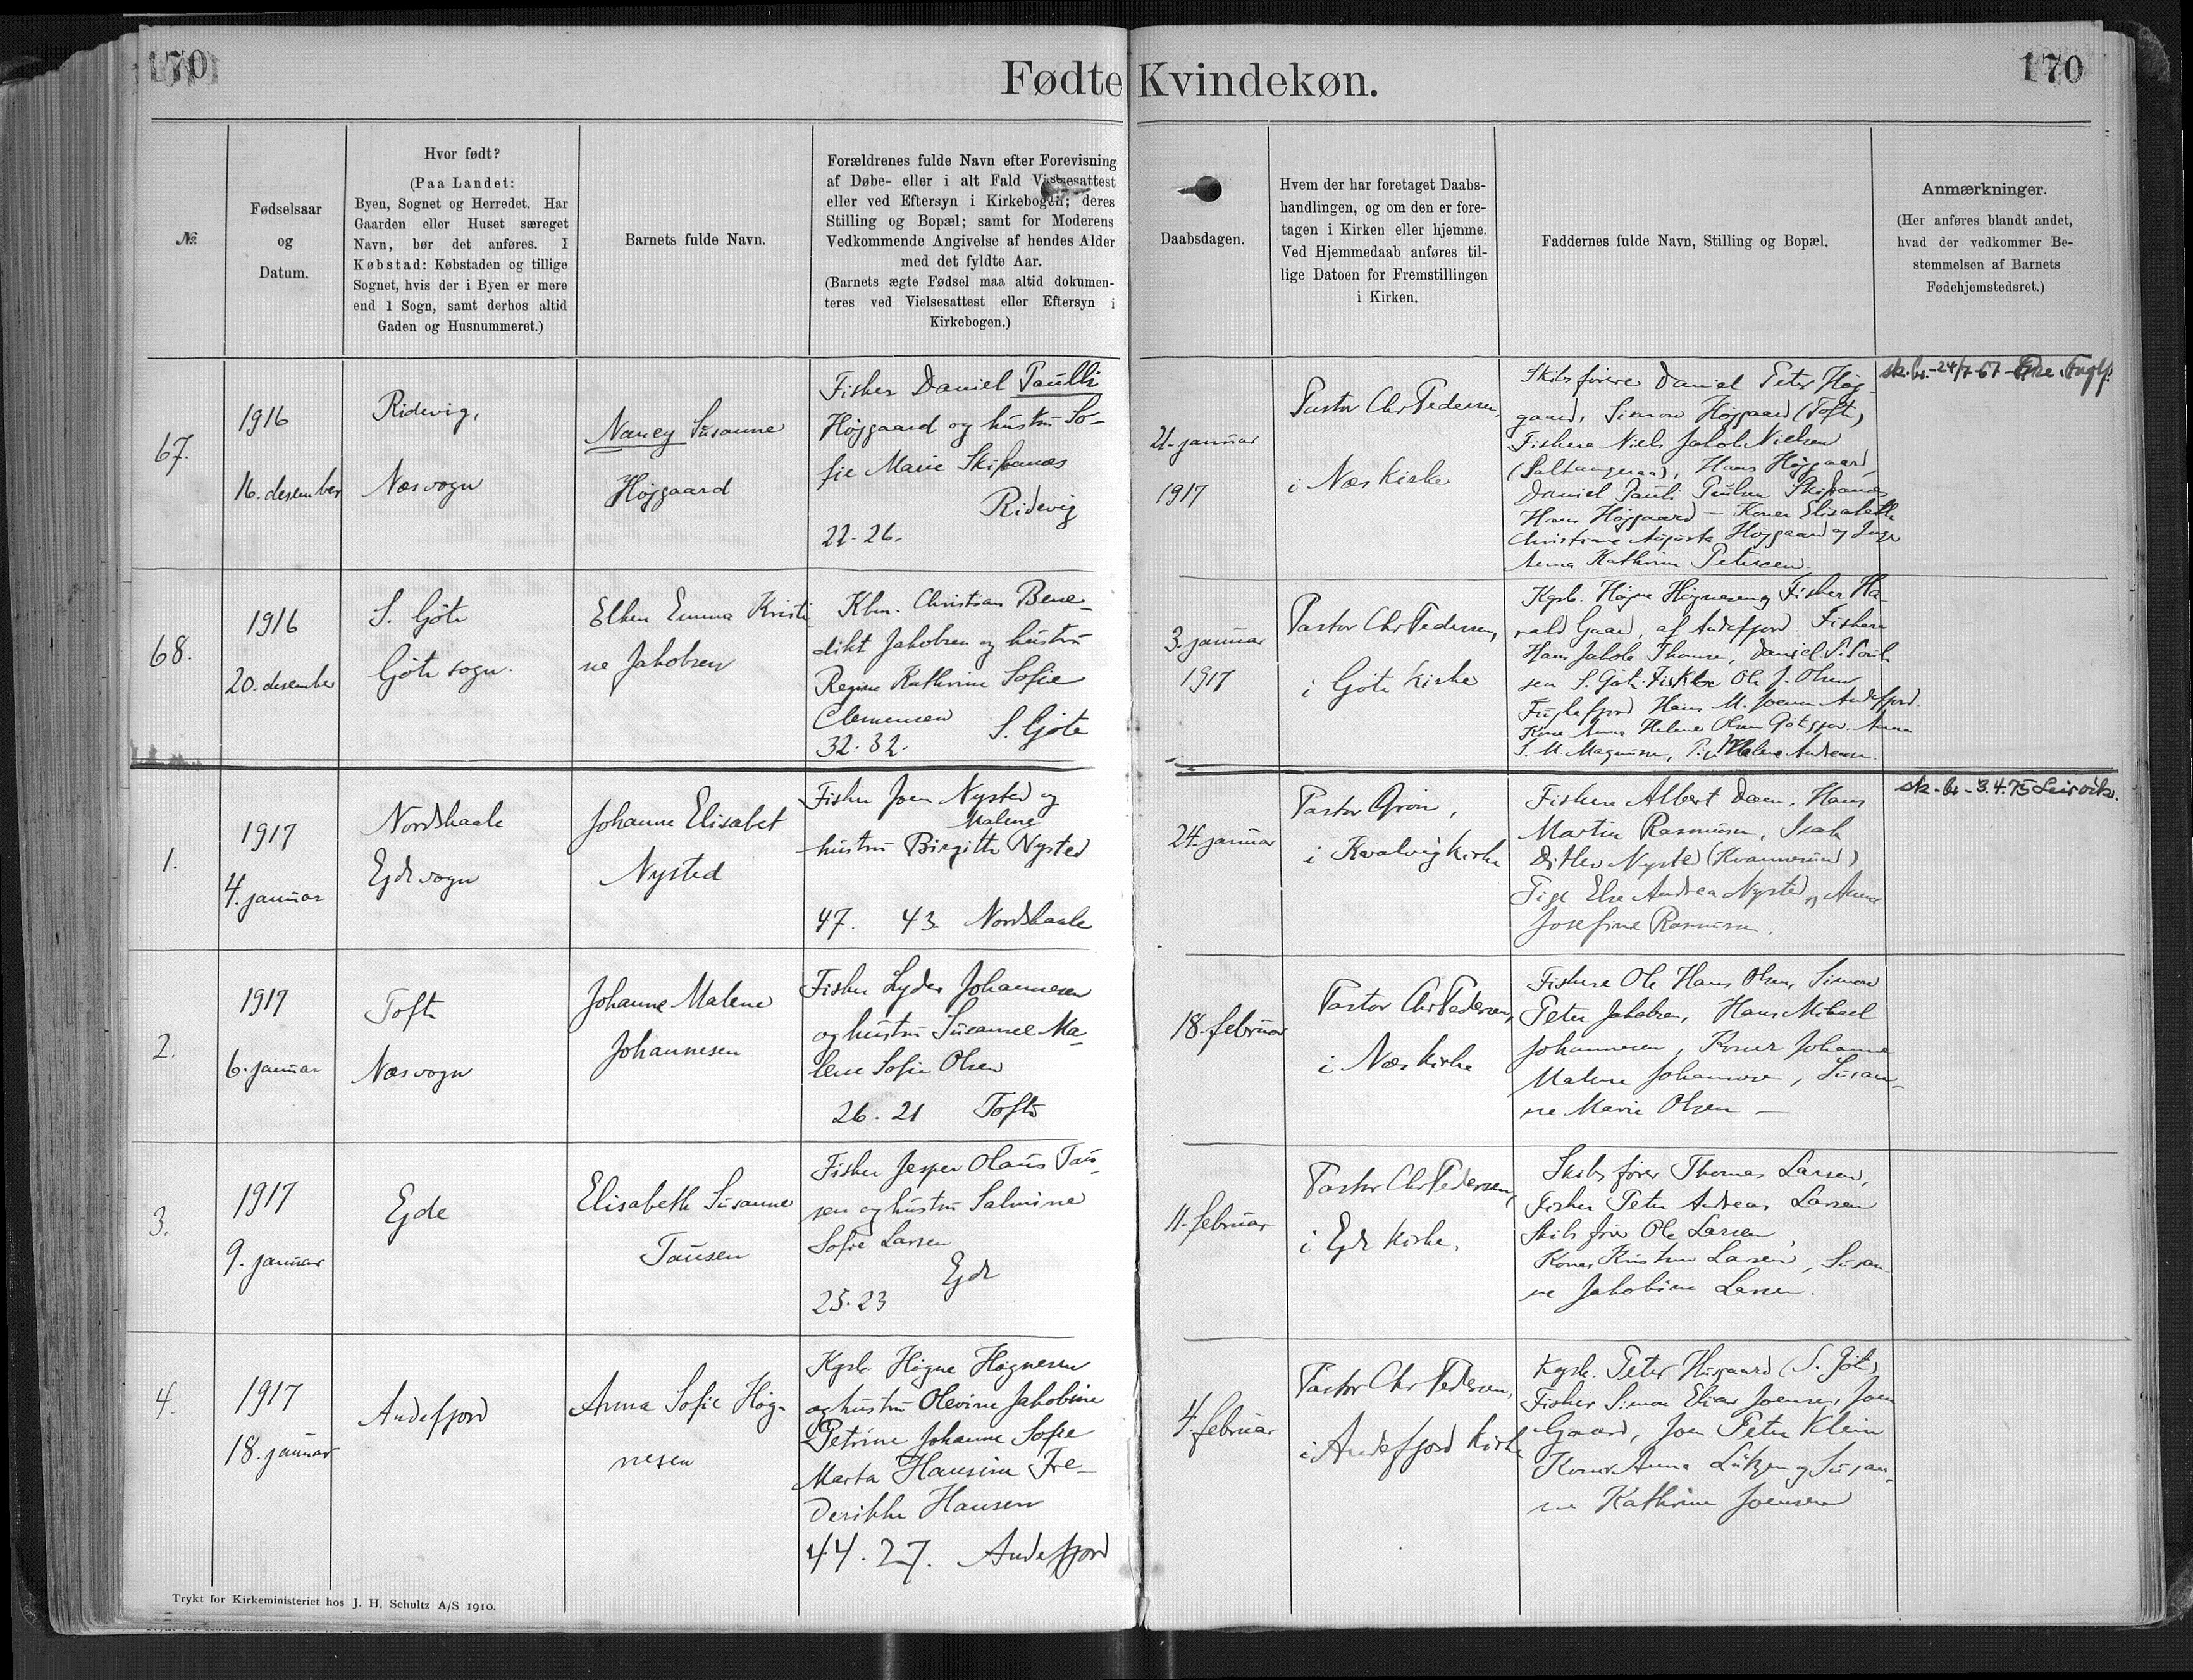 170
Fødte Kvindekøn.
170
№
Fødselsaar
og
Datum.
Hvor født?
(Paa Landet:
Byen, Sognet og Herredet. Har
Gaarden eller Huset særeget
Navn, bør det anføres. I
Købstad: Købstaden og tillige
Sognet, hvis der i Byen er mere
end 1 Sogn, samt derhos altid
Gaden og Husnummeret.)
Barnets fulde Navn.
Forældrenes fulde Navn efter Forevisning
af Døbe- eller i alt Fald Vielsesattest
eller ved Eftersyn i Kirkebogen; deres
Stilling og Bopæl; samt for Moderens
Vedkommende Angivelse af hendes Alder
med det fyldte Aar.
(Barnets ægte Fødsel maa altid dokumen-
teres ved Vielsesattest eller Eftersyn i
Kirkebogen.)
Daabsdagen.
Hvem der har foretaget Daabs-
handlingen, og om den er fore-
tagen i Kirken eller hjemme.
Ved Hjemmedaab anføres til-
lige Datoen for Fremstillingen
i Kirken.
Faddernes fulde Navn, Stilling og Bopæl.
Anmærkninger.
(Her anføres blandt andet,
hvad der vedkommer Be-
stemmelsen af Barnets
Fødehjemstedsret.)
67.
1916
16. desember
Ridevig,
Næs sogn
Nancy Susanne
Højgaard
Fisker Daniel Paulli
Højgaard og hustru So-
fie Marie Skipanæs
Ridevig
22. 26.
21. januar
1917
Pastor Chr Pedersen,
i Næs Kirke
Skibsførere Daniel Peter Høj-
gaard, Simon Højgaard (Toft)
Fiskere Niels Jakob Nielsen
(Saltangeraa), Hans Højgaard,
Daniel Pauli Poulsen Skipanæs
Hans Højgaard - Koner Elisabeth
Christiane Augusta Højgaard og
Anna Kathrine Petersen.
sk. br. - 24/7-61
68.
1916
20. desember
S. Gjøte
Gjøte sogn.
Ellen Emma Kristi
ne Jakobsen
Kbm. Christian Bene-
dikt Jakobsen og hustru
Regine Kathrine Sofie
Clemensen
S. Gjøte
32. 32.
3. januar
1917
Pastor Chr Pedersen,
i Gøte Kirke
Kgsb. Højne Højnesen og Fisker Ha-
rald Gaard, af Andefjord. Fiskere
Hans Jakob Thomsen, Daniel P. Poul-
sen S. Gøte. Fisker Ole J. Olsen
Fuglefjord Hans M. Joensen Andefjord.
Kone Anna Helene Olsen Anna
S. M. Magnussen, Pige Helene Andreasen.
1.
1917
4. januar
Nordskaale
Ejde sogn
Johanne Elisabet
Nysted
Fisker Joen Nysted og
Malene
hustru Birgitte Nysted
47. 43. Nordskaale
24. januar
Pastor Grøn,
i Kvalvig kirke
Fiskere Albert Dam, Hans
Martin Rasmussen, Isak
Ditlev Nysted (Kvannesund)
Pige Else Andrea Nysted og Anna
Josefine Rasmussen.
sk. br. - 3.4.75 Leirvik.
2.
1917
6. januar
Tofte
Næs sogn
Johanne Malene
Johannesen
Fisker Lyder Johannesen
og hustru Susanne Ma-
lene Sofie Olsen
26. 21 Tofte
18. februar
Pastor Chr Pedersen,
i Næs kirke
Fiskere Ole Hans Olsen, Simon
Peter Jakobsen, Hans Mikael
Johannesen, Koner Johanne
Malene Johannesen, Susan-
ne Marie Olsen -
3.
1917
9. januar
Ejde
Elisabeth Susanne
Tausen
Fisker Jesper Olaus Tau-
sen og hustru Salmine
Sofie Larsen
Ejde
25. 23
11. februar
Pastor Chr Pedersen,
i Ejde kirke.
Skibsfører Thomas Larsen,
Fisker Peter Andreas Larsen
Skibsfører Ole Larsen,
Koner Kristine Larsen, Susan-
ne Jakobine Larsen.
4.
1917
18. januar
Andefjord
Anna Sofie Høg-
nesen
Kgsb. Høgne Høgnesen
og hustru Olevine Jakobine
Petrine Johanne Sofie
Marta Hansine Fre-
derikke Hansen
44. 27. Andefjord
4. februar
Pastor Chr Pedersen,
i Andefjord kirke
Kgsb. Peter Husgaard (S. Gøte)
Fisker Simon Elias Joensen, Joen
Gaard, Joen Peter Klein
Koner Anna Lützen og Susan-
ne Kathrine Joensen
Trykt for Kirkeministeriet hos J. H. Schultz A/S 1910.